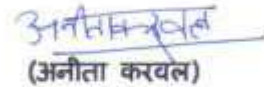 अनीता करवल
(अनीता करवल)